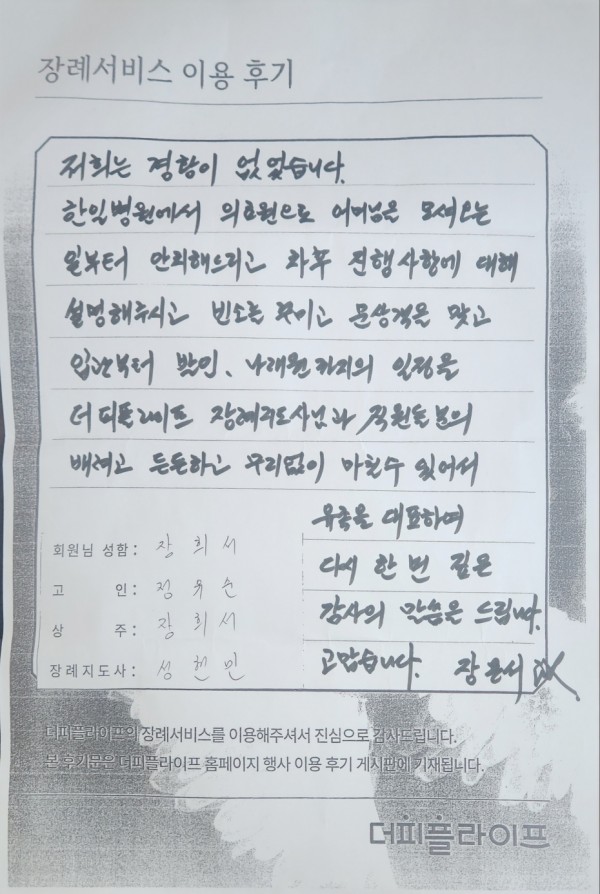 장례서비스 이용 후기
저희는 경황이 없었습니다.
한일병원에서 의료원으로 어머님을 모셔오는
일부터 안내해드리고 차후 진행사항에 대해
설명해주시고 빈소를 꾸미고 문상객을 맞고
입관부터 발인, 나래원까지의 일정을
더피플라이프 장례지도사님과 직원들분의
배려로 든든하고 무리없이 마칠수 있어서
유족을 대표하여
다시 한 번 깊은
감사의 말씀을 드립니다.
고맙습니다. 장희서
회원님 성함 : 장 희 서
고 인 : 정 유 순
상 주 : 장 희 서
장례지도사 : 성
더피플라이프의 장례서비스를 이용해주셔서 진심으로 감사드립니다.
본 후기문은 더피플라이프 홈페이지 행사 이용 후기 게시판에 기재됩니다.
더피플라이프